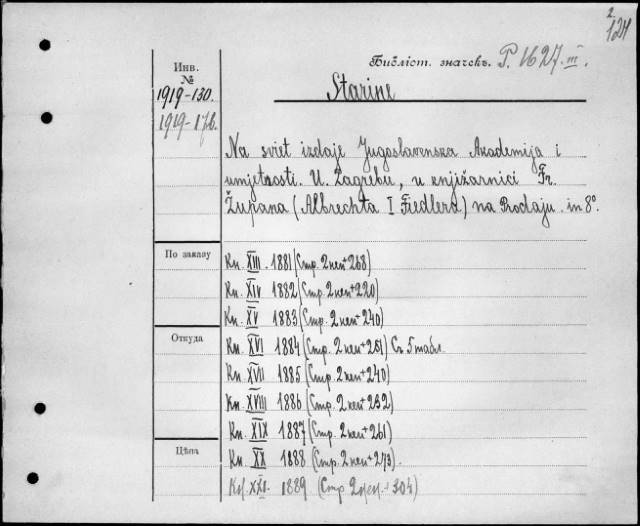 2.
124
Библіот. значекъ. P. 1627. III.
Starine
Инв.
№
1919-130.
1919-176.
Na sviet izdaje Jugoslavenska Akademija i
umjetnosti. U. Zagrebu, u knjižarnici Fr.
Župana (Albrechta I Fiedlera) na Prodaju. in 8°.
По заказу
Кн. XIII. 1881 (Стр. 2 неп + 268)
Кн. XIV 1882 (Стр. 2 неп + 220)
Кн. XV 1883 (Стр. 2 неп + 240)
Откуда
Кн. XVI 1884 (Стр. 2 неп + 251) Съ 5 табл.
Кн. XVII 1885 (Стр. 2 неп + 240)
Кн. XVIII 1886 (Стр. 2 неп + 232)
Кн. XIX 1887 (Стр. 2 неп + 261)
Цѣна
Кн. XX 1888 (Стр. 2 неп + 273).
Кн. XXI. 1889 (Стр. 2 неп. + 304)